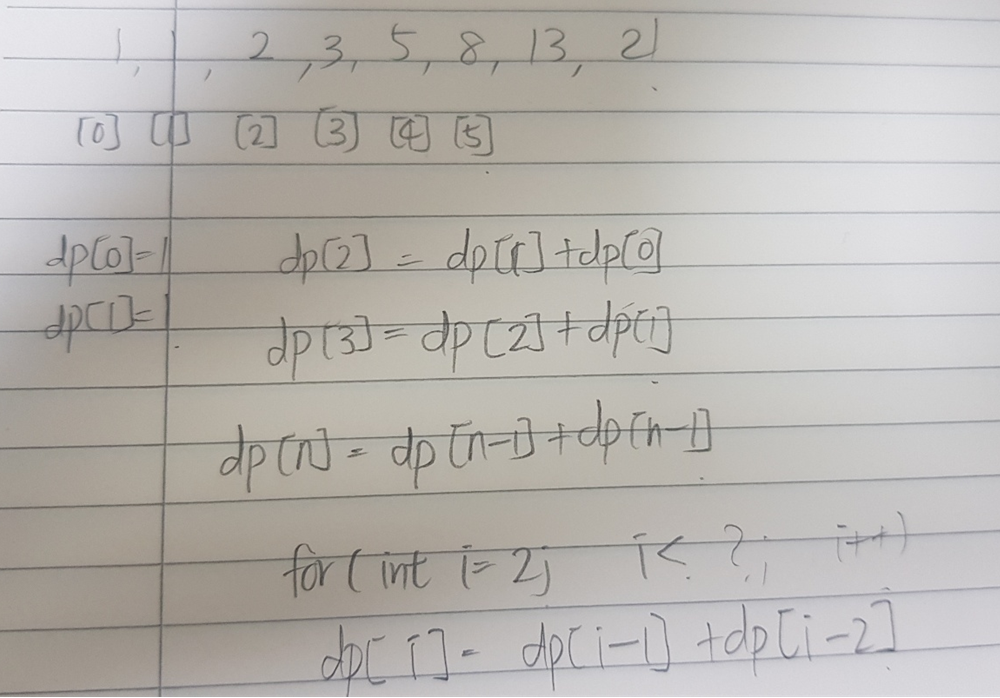 1, 1, 2, 3, 5, 8, 13, 21
[0] [1] [2] [3] [4] [5]
dp[0]=1 dp[2] = dp[1]+dp[0]
dp[1]=1 dp[3] = dp[2]+dp[1]
dp[n] = dp[n-1]+dp[n-1]
for(int i=2; i< ?; i++)
dp[i] = dp[i-1] +dp[i-2]